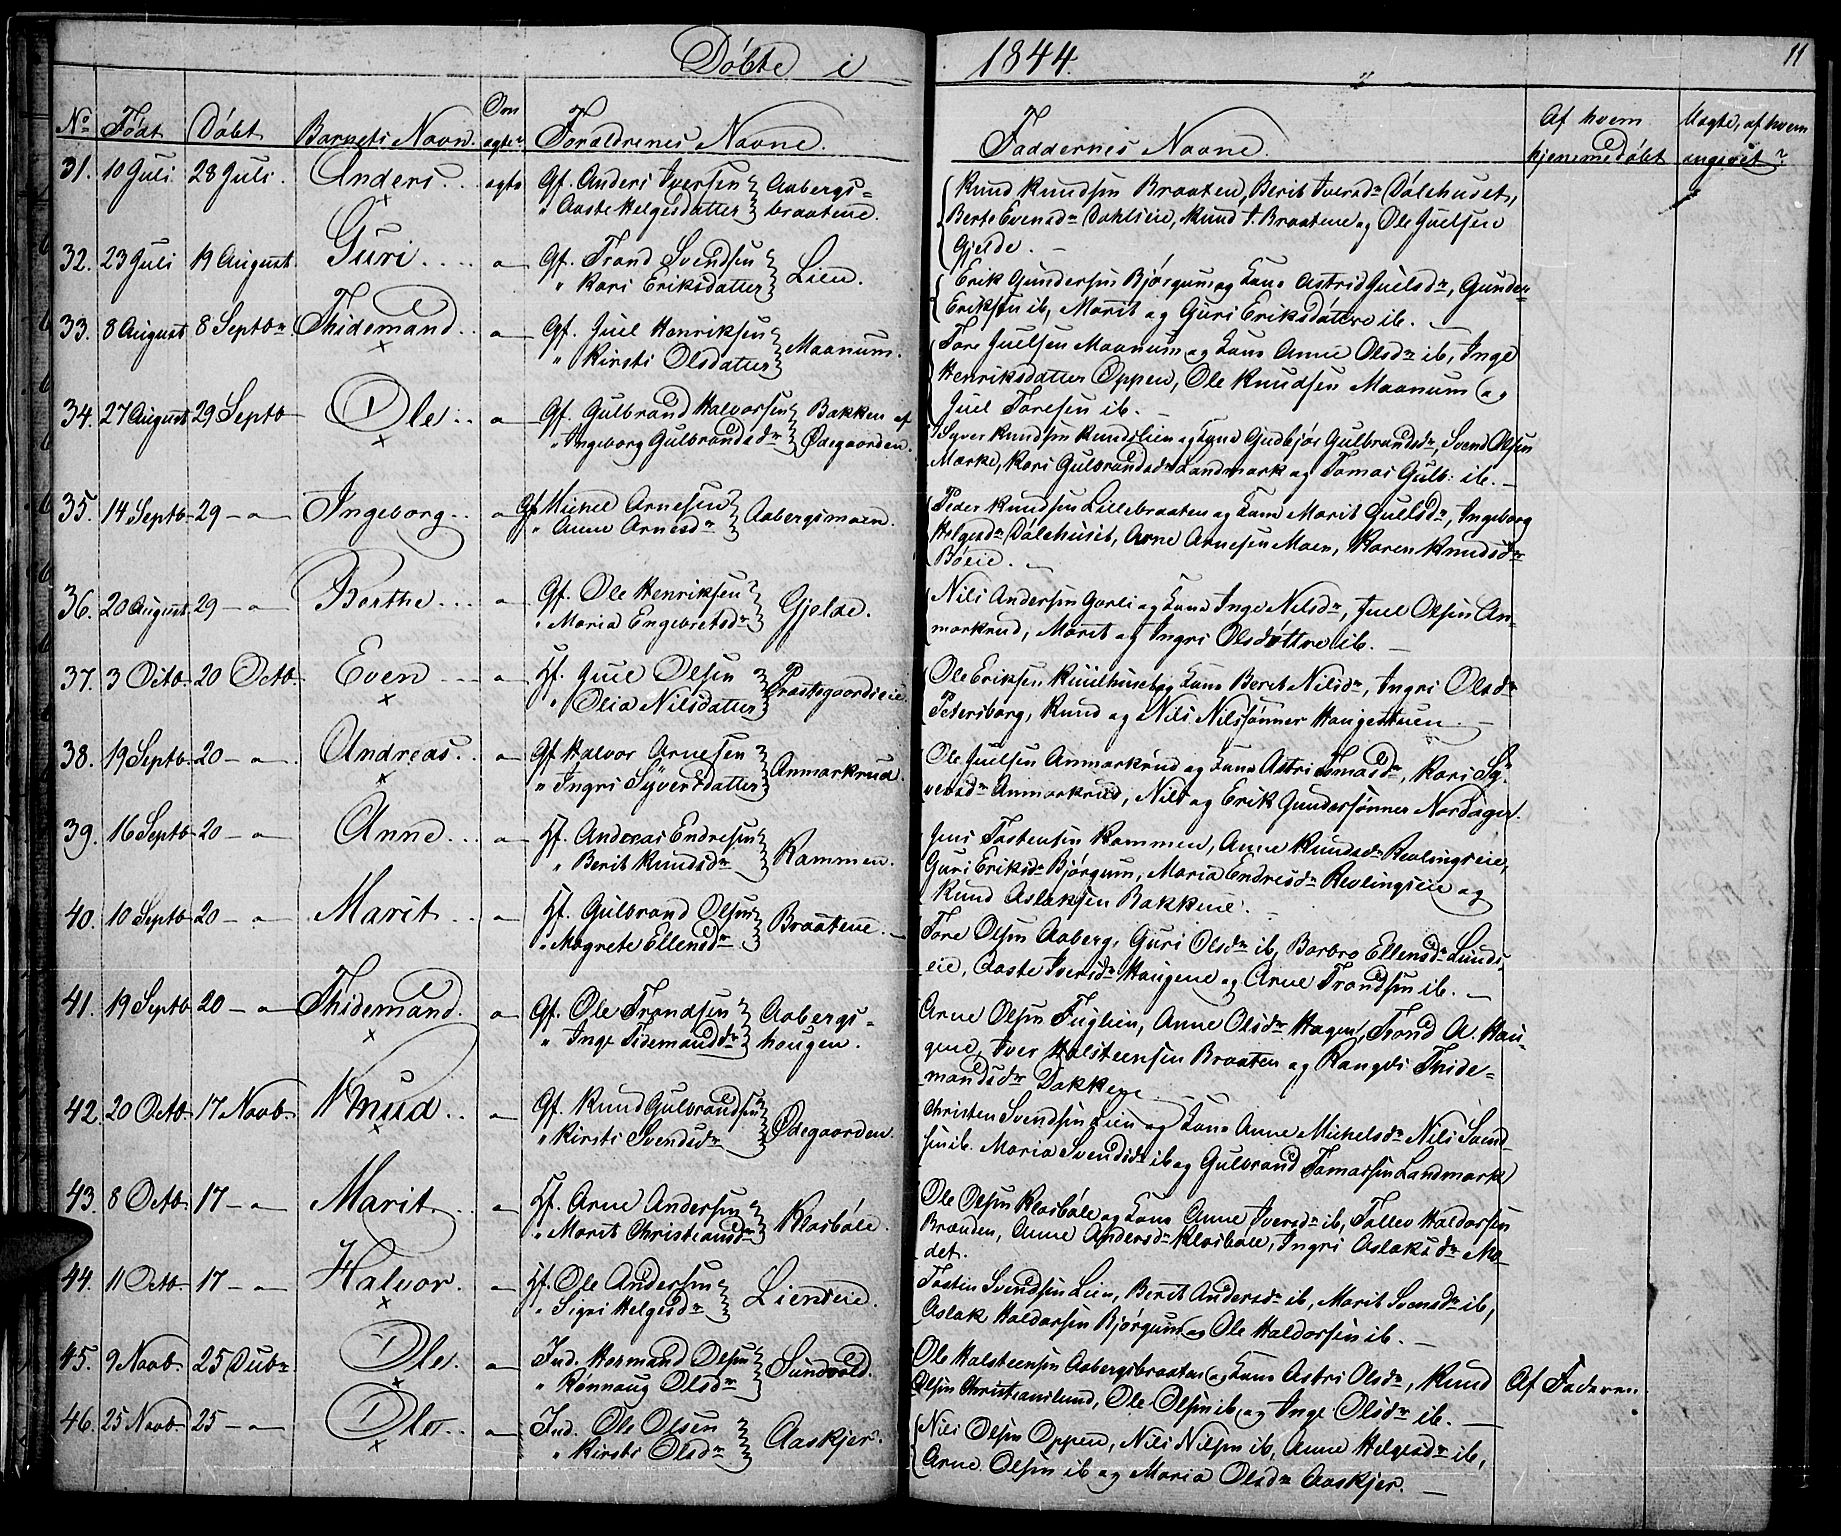 Døbte i 1844. 11
No Født Døbt Barnets Navn. Om ægte Forældrenes Navne. Faddernes Navne. Af hvem hjemmedøbt Uægte, af hvem angivet?
31. 10 Juli 28 Juli. Anders. ægte Gf. Anders Iversen Aabergs=
" Aaste Helgesdatter braatene.
Knud Knudsen Braaten, Berit Iversdr Dølehuset,
Berte Evensdr Dahlseie, Knud I. Braatene og Ole Juelsen
Gjelde.
32. 23 Juli 19 August Guri. " Gf. Trond Svendsen Lien.
" Kari Eriksdatter
Erik Gundersen Bjørgum og Kone Astrid Juelsdr, Gunder
Eriksen ib, Marit og Guri Eriksdøtre ib.
33. 8 August 8 Septbr Thidemand. " Gf. Juel Henriksen Maanum.
" Kirsti Olsdatter
Tore Juelsen Maanum og Kone Anne Olsdr ib, Inge
Henriksdatter Oppen, Ole Knudsen Maanum og
Juel Toresen ib.
34. 27 August 29 Septb Ole. " Gf. Gulbrand Halvorsen Bakken af
" Ingeborg Gulbrandsdr Ødegaarden.
Syver Knudsen Kundslien og Kone Gudbjør Gulbrandsdr, Svend Olsen
Mærke, Kari Gulbrandsdr Landmark og Tomas Gulb: ib.
35. 14 Septb 29 - " - Ingeborg. " Gf. Michel Arnesen Aabergsmoen.
" Anne Arnesdr
Peder Knudsen Lillebraaten og Kone Marit Gullsdr, Ingeborg
Helgesdr Dølehuset, Arne Arnesen Moen, Karen Knudsdr
Bøeie.
36. 20 August 29 - " - Berthe. " Gf. Ole Henriksen Gjelde.
" Maria Engebretsdr
Nils Andersen Garli og Kone Inge Nilsdr, Juel Olsen An-
markrud, Marit og Ingri Olsdøttre ib.
37. 3 Octb. 20 Octb. Even " Hf. Juel Olsen Præstegaardseie
" Olia Nilsdatter
Ole Eriksen Kuilhuset og Kone Berit Nilsdr, Ingri Olsdr
Petersborg, Knud og Nils Nilssønner Haugestuen.
38. 19 Septb 20 - " - Andreas. " Gf. Halvor Arnesen Anmarkrud.
" Ingri Syversdatter
Ole Juelsen Anmarkrud og Kone Astri Tomasdr, Kari Sy-
versdr Anmarkrud, Nils og Erik Gunderssønner Nordager.
39. 16 Septb 20 - " Anne. " Hf. Andreas Endresen Rammen.
" Berit Knudsdr
Jens Tostensen Rammen, Anne Knudsdr Revlingseie,
Guri Eriksdr Bjørgum, Maria Endresdr Revlingseie og
Knud Aslaksen Bakkene.
40. 10 Septb 20 - " Marit. " Hf. Gulbrand Olsen Braatene.
" Magrete Ellensdr
Tore Olsen Aaberg, Guri Olsdr ib, Barbro Ellensdr Lunds-
eie, Aaste Iversdr Haugene og Arne Trondsen ib.
41. 19 Septb 20 - " Thidemand. " Gf. Ole Trondsen Aabergs=
" Inge Tidemandsdr haugen.
Arne Olsen Fuglien, Anne Olsdr Hagen, Trond A. Hau-
gene, Iver Halsteensen Braaten og Rangdi Thide-
mandsdr Bakkene
42. 20 Octb. 17 Novb. Knud. " Gf. Knud Gulbrandsen Ødegaarden.
" Kirsti Svendsdr
Christen Svendsen Lien og Kone Anne Michelsdr Nils Svend-
sen ib. Maria Svendsdr ib og Gulbrand Tomassen Landmark
43. 8 Octb 17 - " Marit. " Hf. Arne Andersen Klosbøle.
" Marit Christiansdr
Ole Olsen Klosbøle og Kone Anne Iversdr ib, Tollev Haldorsen
Brænden, Anne Andersdr Klosbøle, Ingri Aslaksdr Mo-
det.
44. 11 Octb. 17 - " Halvor. " Hf. Ole Andersen Lienseie.
" Sigri Helgesdr
Tosten Svendsen Lien, Berit Andersdr ib, Marit Svensdr ib,
Aslak Haldorsen Bjørgum og Ole Haldorsen ib.
45. 9 Novb. 25 Dcbr Ole. " Ind. Hermand Olsen Sundvold.
" Rønnaug Olsdr
Ole Halsteensen Aabergsbraaten og Kone Astri Olsdr, Knud
Olsen Christianslund, Ole Olsen ib og Inge Olsdr ib.
Af Faderen.
46. 25 Novb. 25 - " Ole. " Ind. Ole Olsen Aaskjer.
" Kirsti Olsdr
Nils Olsen Oppen, Nils Nilsen ib, Anne Helgesdr ib,
Arne Olsen ib og Maria Olsdr Aaskjer.